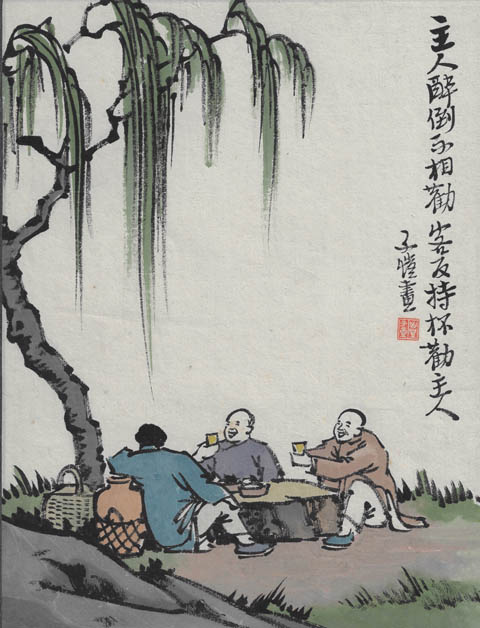 主人醉倒不相勸客反持杯勸主人
子愷畫